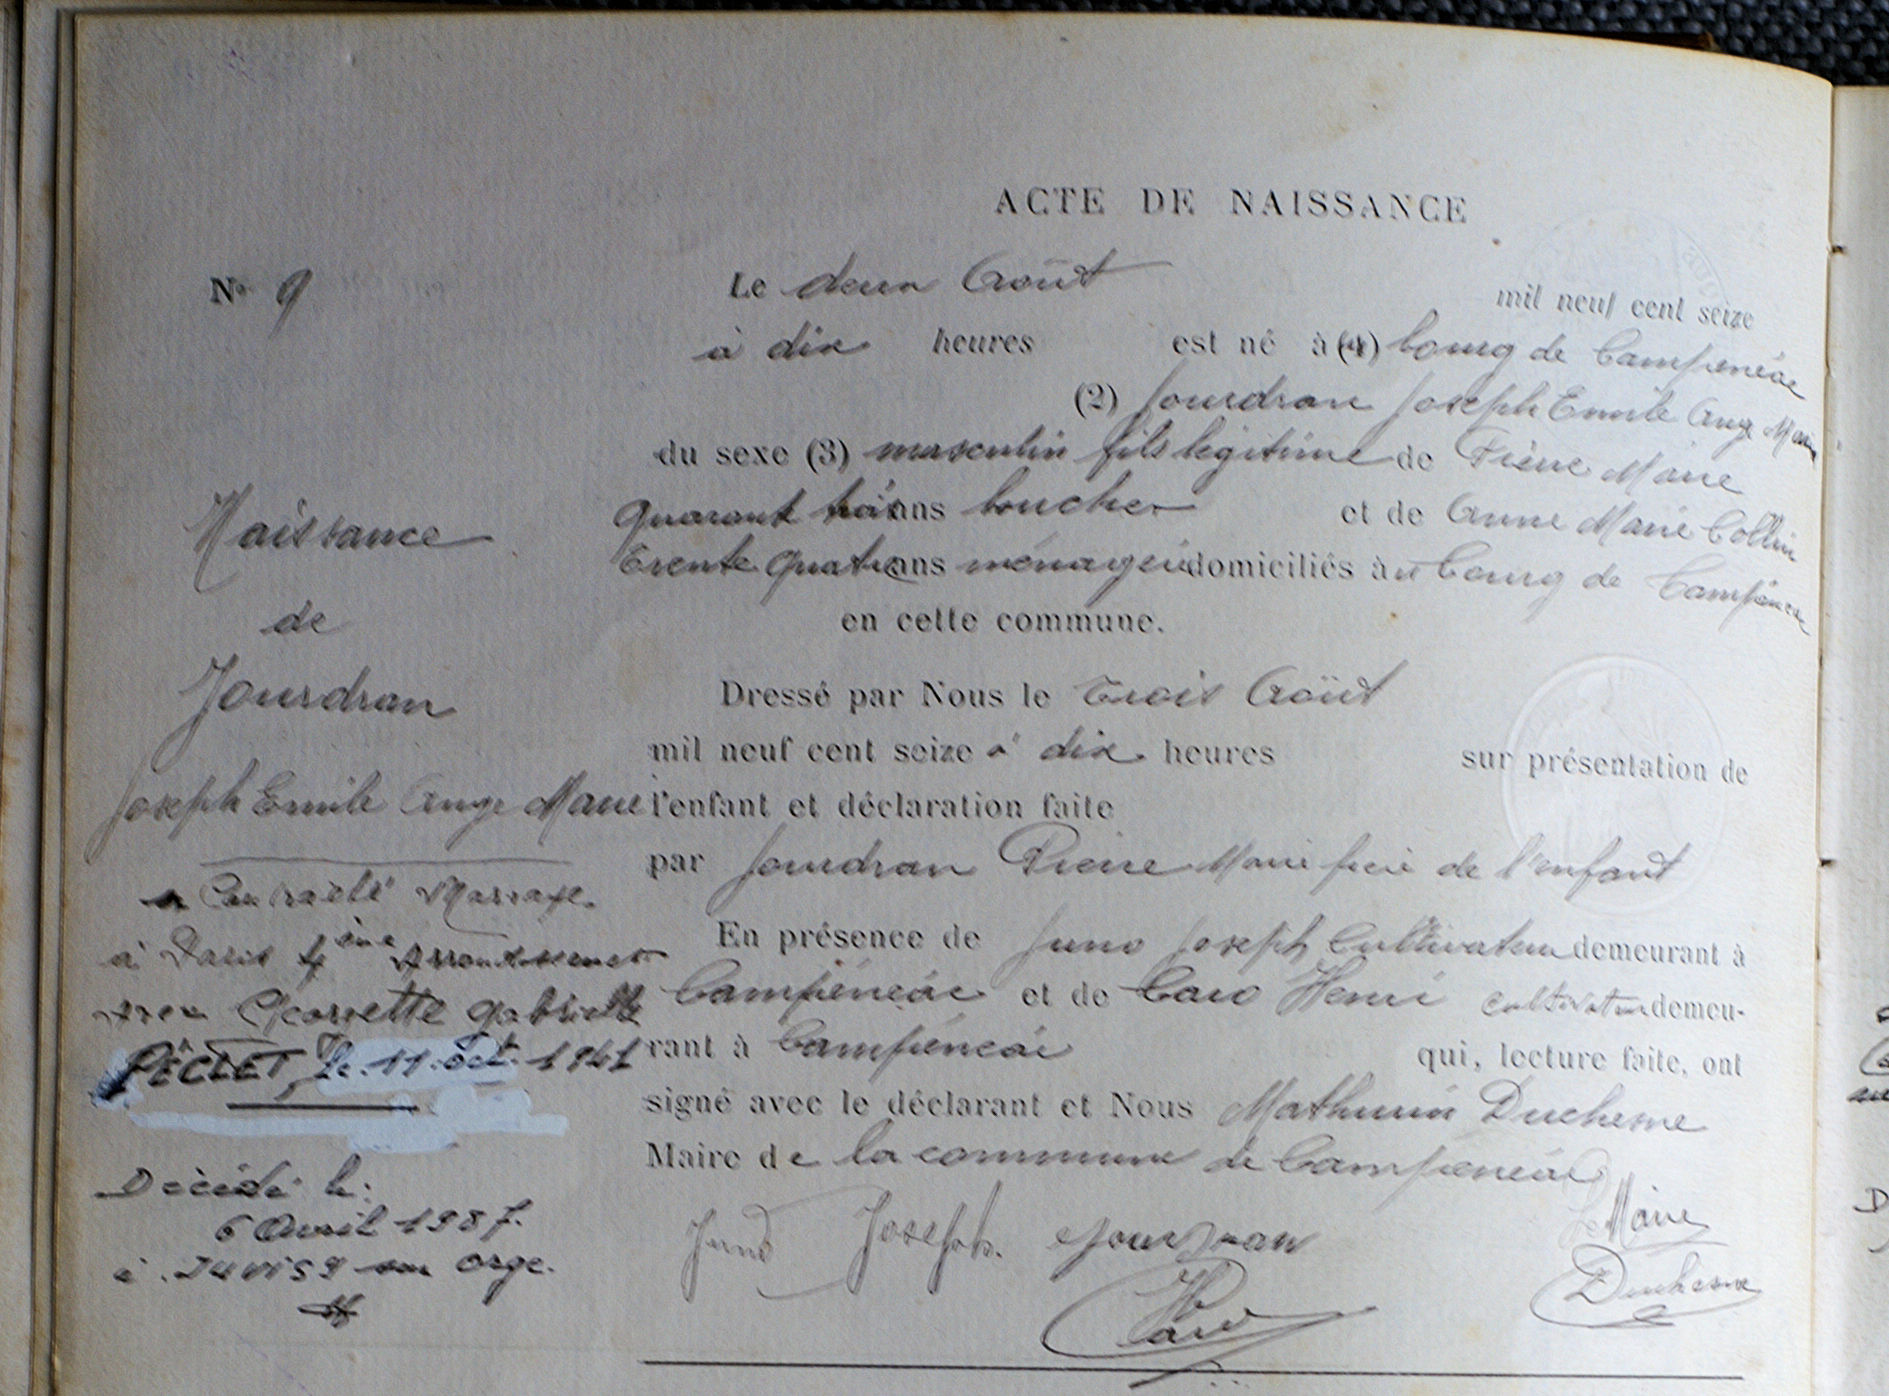 ACTE DE NAISSANCE
N° 9
Le deux Août mil neuf cent seize
à dix heures est né à (4) bourg de Campénéac
(2) Jourdran Joseph Emile Ange Marie
du sexe (3) masculin fils légitime de Pierre Marie
quarante trois ans boucher et de Anne Marie Collin
trente quatre ans ménagère domiciliés au bourg de Campénéac
en cette commune.
Dressé par Nous le trois Août
mil neuf cent seize à dix heures sur présentation de
l'enfant et déclaration faite
par Jourdran Pierre Marie père de l'enfant
En présence de Juno Joseph Cultivateur demeurant à
Campénéac et de Caro Henri cultivateur demeu-
rant à Campénéac qui, lecture faite, ont
signé avec le déclarant et Nous Mathurin Duchesne
Maire de la commune de Campénéac
Juno Joseph. Jourdran
Le Maire
Duchesne
HCaro
Naissance
de
Jourdran
Joseph Emile Ange Marie
a Contracté Mariage
à Paris 4ème Arrondissement
avec Georgette Gabrielle
PÉCLET, le 11 oct. 1941
Décédé le:
6 Avril 1987.
à Juvisy sur Orge.